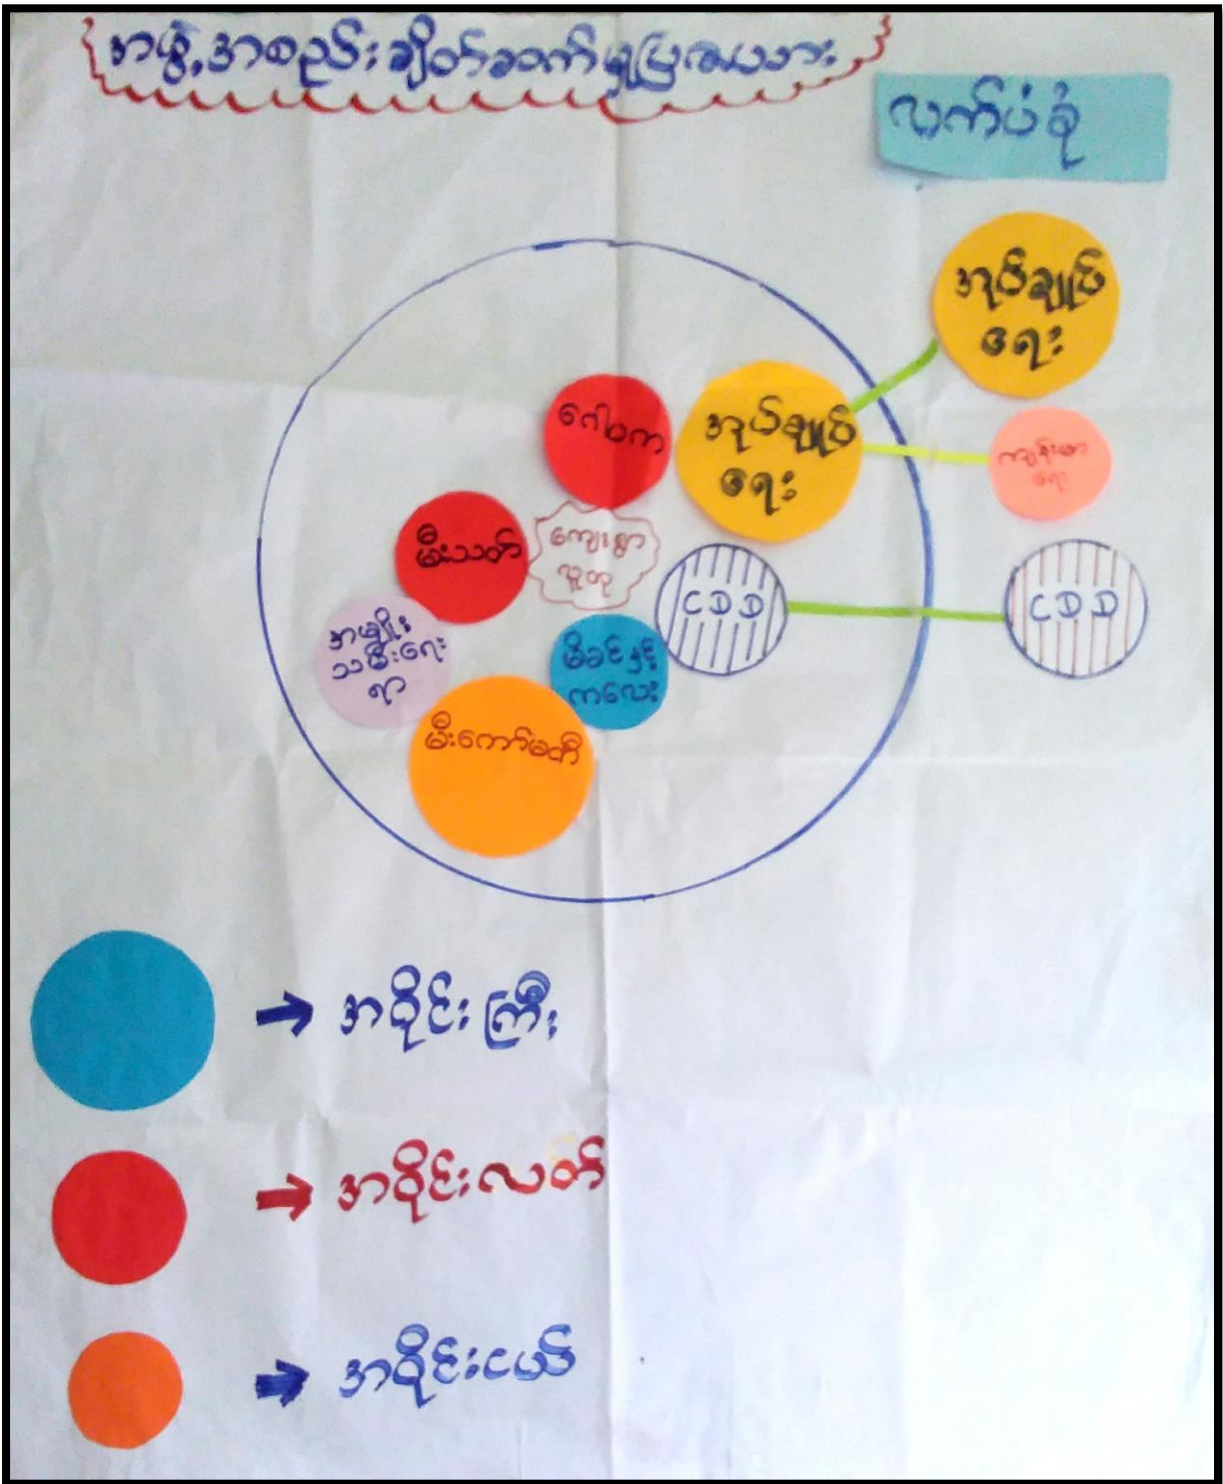 အဖွဲ့အစည်းချိတ်ဆက်မှုပြဇယား
လက်ပံခုံ
အုပ်ချုပ်
ရေး
ဂေါပက
အုပ်ချုပ်
ရေး
ကျန်းမာ
ရေး
မီးသတ်
ကျေးရွာ
လူထု
CDD
CDD
အမျိုး
သမီးရေး
ရာ
မိခင်နှင့်
ကလေး
မီးကော်မတီ
အဝိုင်းကြီး
အဝိုင်းလတ်
အဝိုင်းငယ်